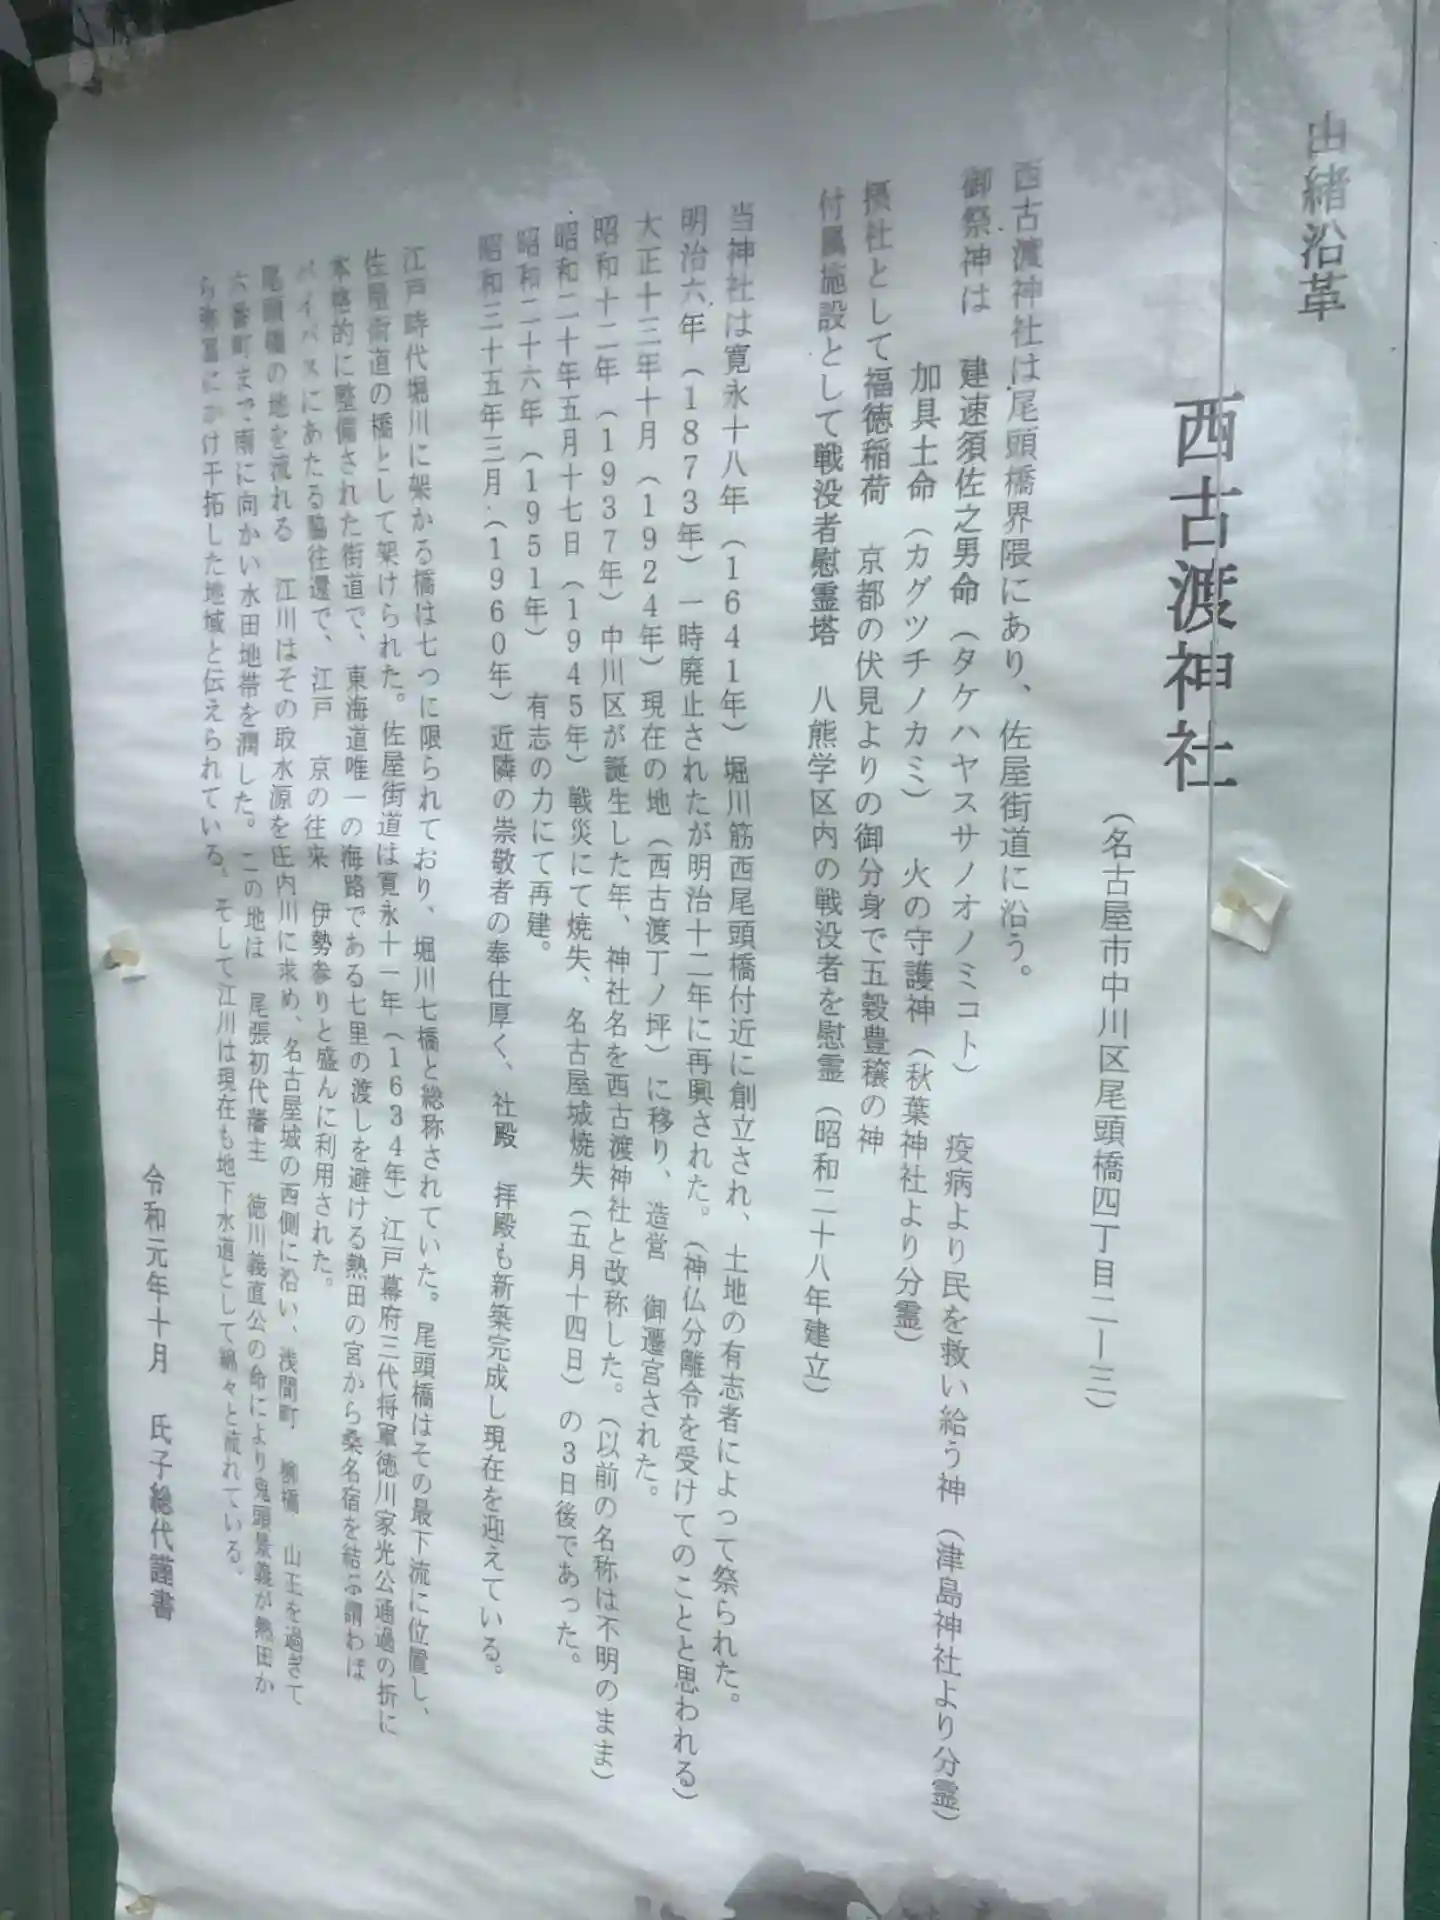 由緒沿革
西古渡神社
（名古屋市中川区尾頭橋四丁目二ー三）
西古渡神社は尾頭橋界隈にあり、佐屋街道に沿う。
御祭神は　建速須佐之男命（タケハヤスサノオノミコト）　疫病より民を救い給う神　（津島神社より分霊）
加具土命（カグツチノカミ）　火の守護神　（秋葉神社より分霊）
摂社として福徳稲荷　京都の伏見よりの御分身で五穀豊穣の神
付属施設として戦没者慰霊塔　八熊学区内の戦没者を慰霊（昭和二十八年建立）
当神社は寛永十八年（1641年）堀川筋西尾頭橋付近に創立され、土地の有志者によって祭られた。
明治六年（1873年）一時廃止されたが明治十二年に再興された。（神仏分離令を受けてのことと思われる）
大正十三年十月（1924年）現在の地（西古渡丁ノ坪）に移り、造営　御遷宮された。
昭和十二年（1937年）中川区が誕生した年、神社名を西古渡神社と改称した。（以前の名称は不明のまま）
昭和二十年五月十七日（1945年）戦災にて焼失、名古屋城焼失（五月十四日）の3日後であった。
昭和二十六年（1951年）　有志の力にて再建。
昭和三十五年三月（1960年）近隣の崇敬者の奉仕厚く、社殿　拝殿も新築完成し現在を迎えている。
江戸時代堀川に架かる橋は七つに限られており、堀川七橋と総称されていた。尾頭橋はその最下流に位置し、
佐屋街道の橋として架けられた。佐屋街道は寛永十一年（1634年）江戸幕府三代将軍徳川家光公通過の折に
本格的に整備された街道で、東海道唯一の海路である七里の渡しを避ける熱田の宮から桑名宿を結ぶ謂わば
バイパスにあたる脇往還で、江戸　京の往来　伊勢参りと盛んに利用された。
尾頭橋の地を流れる　江川はその取水源を庄内川に求め、名古屋城の西側に沿い、浅間町　柳橋　山王を過ぎて
六番町まで南に向かい水田地帯を潤した。この地は　尾張初代藩主　徳川義直公の命により鬼頭景義が熱田か
ら弥富にかけ干拓した地域と伝えられている。そして江川は現在も地下水道として綿々と流れている。
令和元年十月　氏子総代謹書